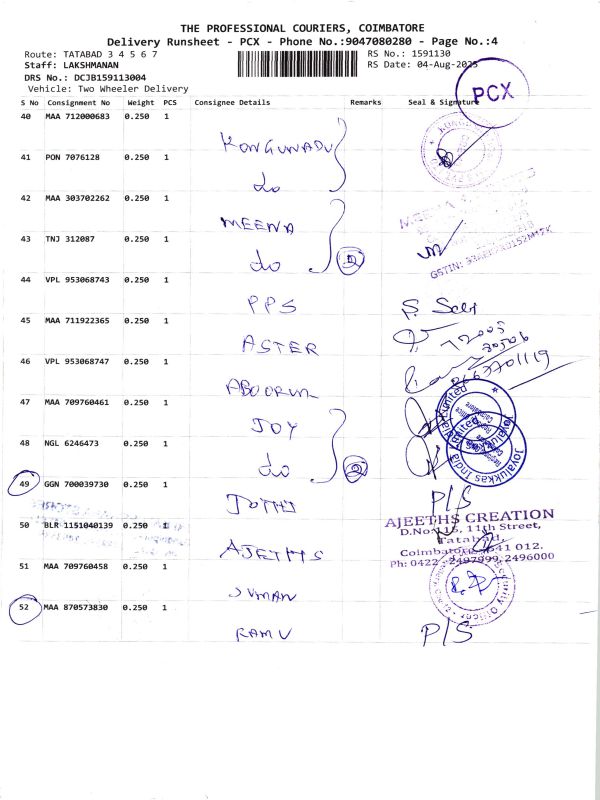 THE PROFESSIONAL COURIERS, COIMBATORE
Delivery Runsheet - PCX - Phone No.:9047080280 - Page No.:4
Route: TATABAD 3 4 5 6 7
RS No.: 1591130
Staff: LAKSHMANAN
RS Date: 04-Aug-2025
DRS No.: DCJB159113004
Vehicle: Two Wheeler Delivery
PCX
S No Consignment No Weight PCS Consignee Details Remarks Seal & Signature
40 MAA 712000683 0.250 1
KONGUNADU
41 PON 7076128 0.250 1
do
42 MAA 303702262 0.250 1
MEENA
43 TNJ 312087 0.250 1
do 2
GSTIN:
44 VPL 953068743 0.250 1
PPS
45 MAA 711922365 0.250 1
ASTER
46 VPL 953068747 0.250 1
47 MAA 709760461 0.250 1
JOY
48 NGL 6246473 0.250 1
do 2
Joyalukkas India Limited
49 GGN 700039730 0.250 1
JOTHI P/S
50 BLR 1151040139 0.250 1
AJEETHS
AJEETHS CREATION
D.No:115, 11th Street,
Tatabad,
Coimbatore - 641 012.
Ph: 0422 - 2497999, 2496000
51 MAA 709760458 0.250 1
SUMAN
52 MAA 870573830 0.250 1
RAMU P/S